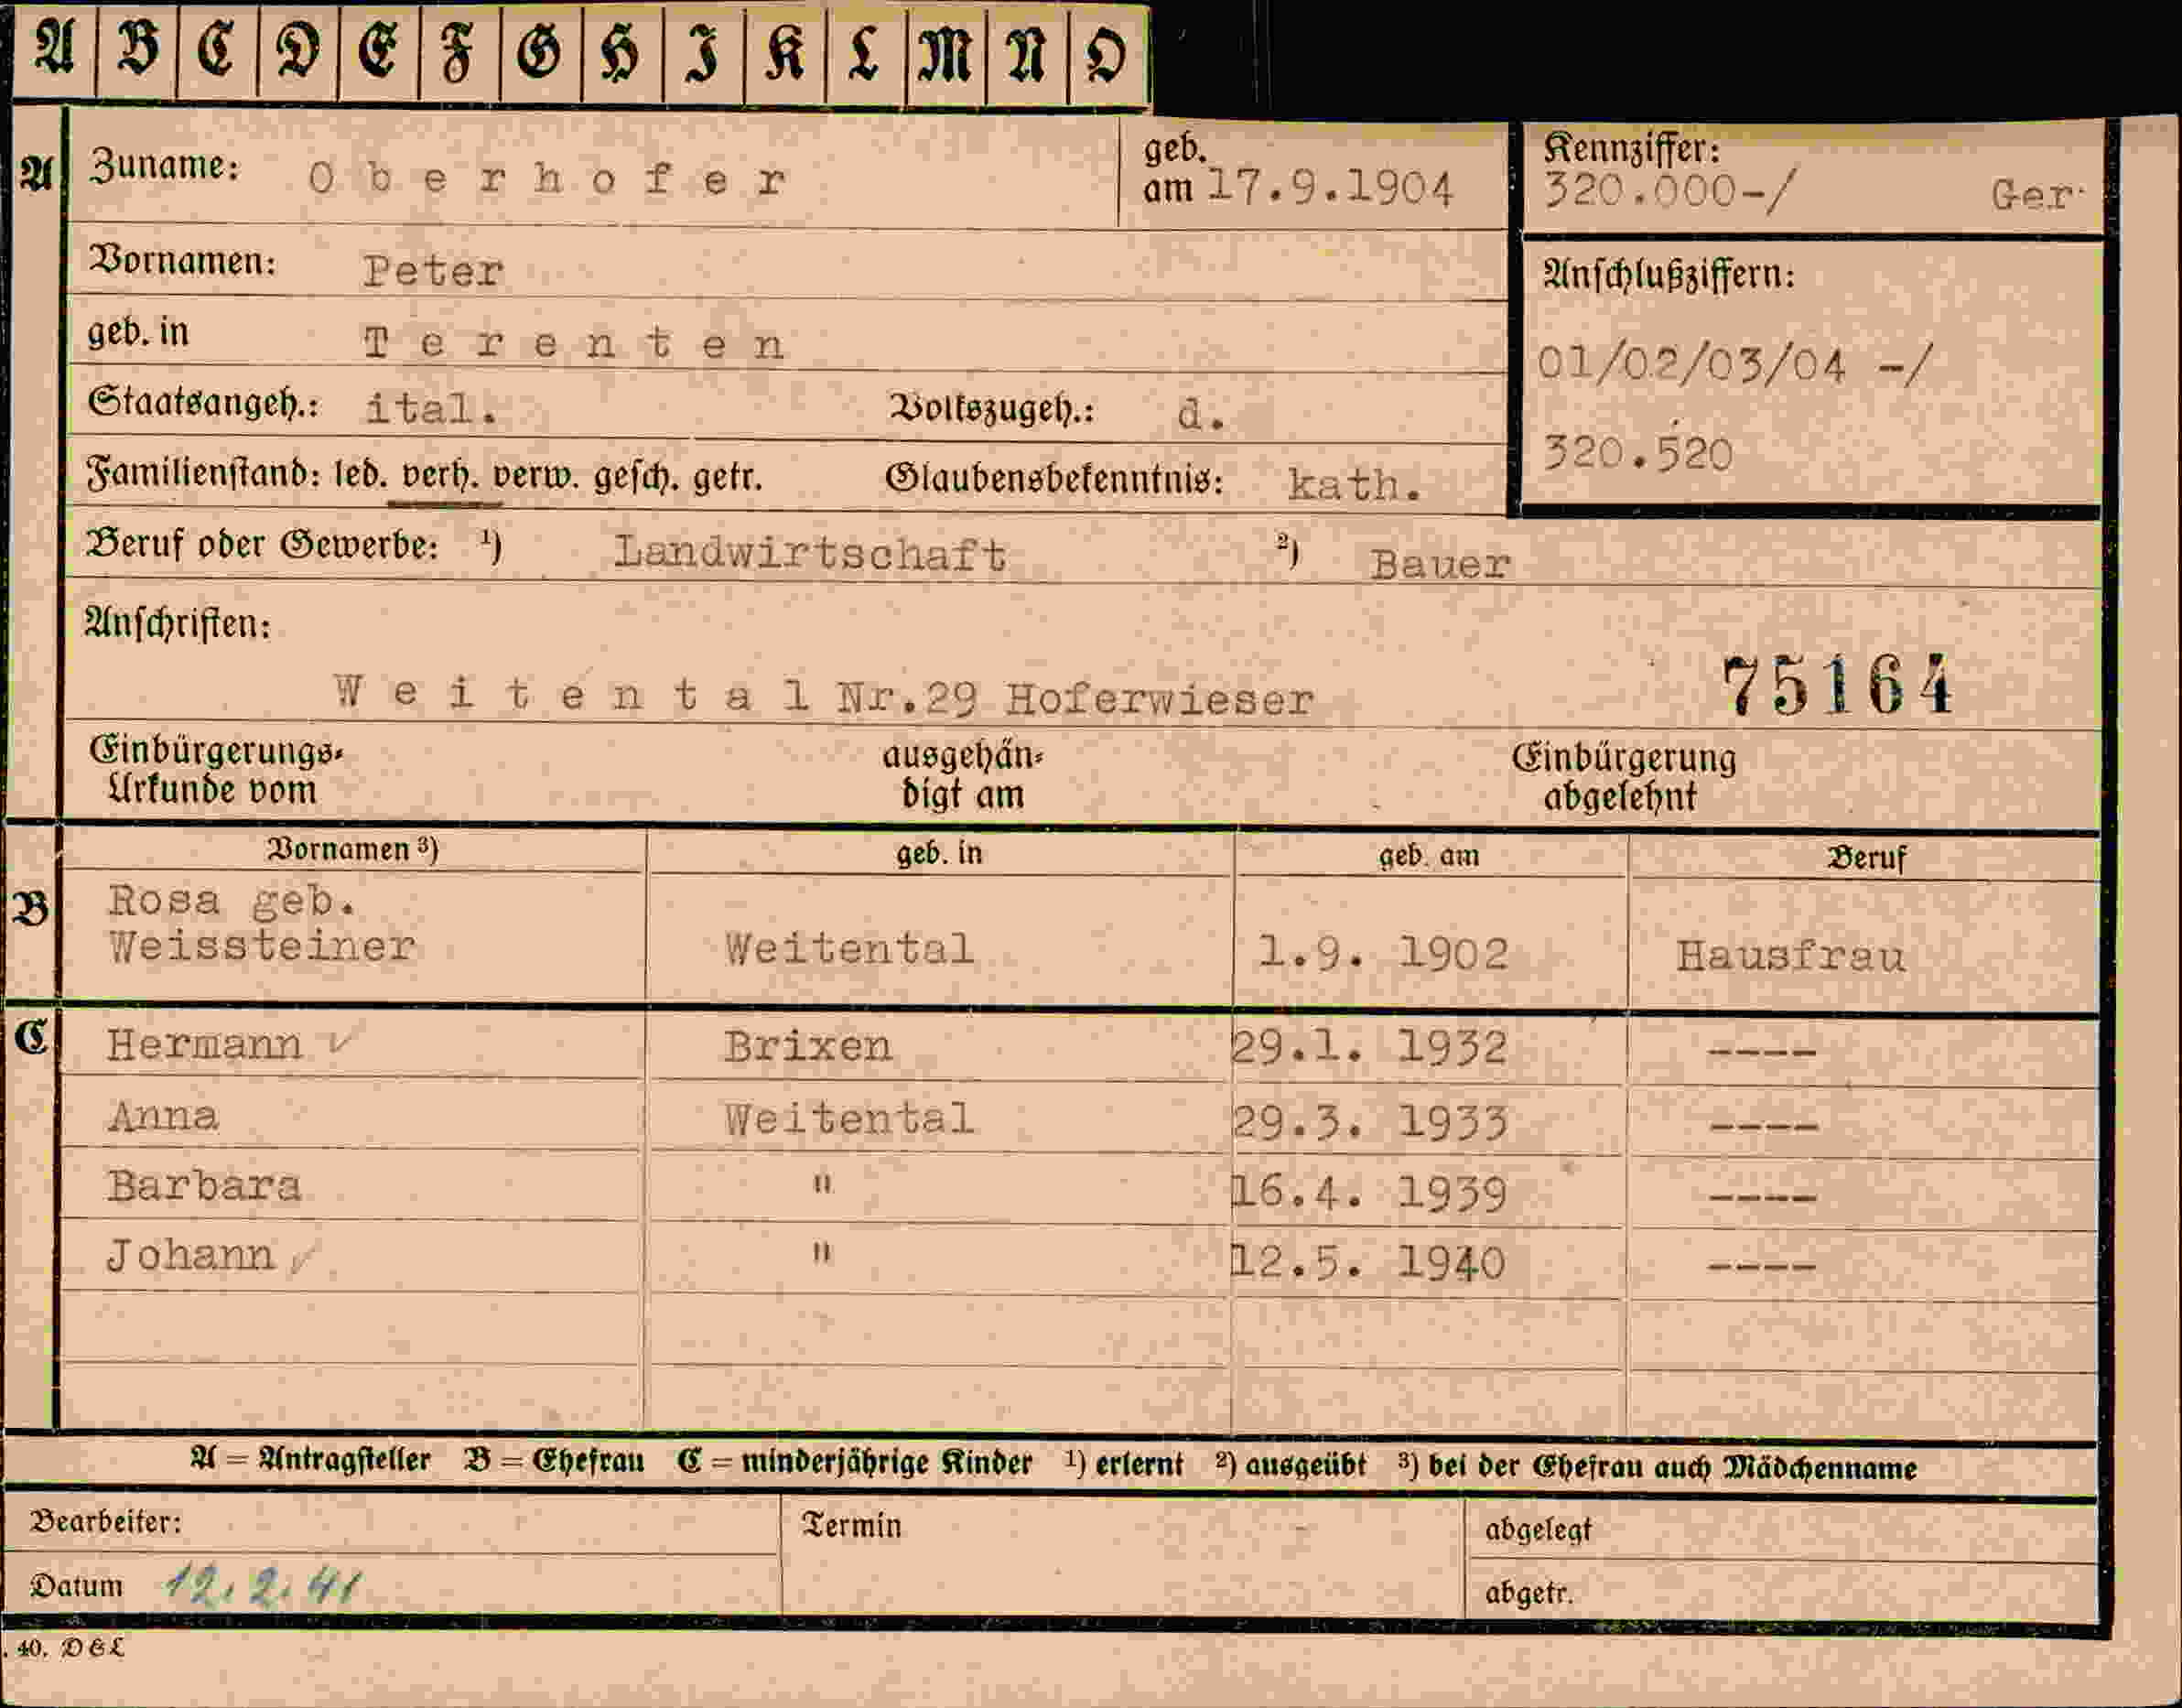 A B C D E F G H I K L M N O
A Zuname: Oberhofer geb. am 17.9.1904
Kennziffer: 320.000-/ Ger.
Vornamen: Peter
geb. in Terenten
Anschlußziffern:
01/02/03/04 -/
320.520
Staatsangeh.: ital. Volkszugeh.: d.
Familienstand: led. verh. verw. gesch. getr. Glaubensbekenntnis: kath.
Beruf oder Gewerbe: 1) Landwirtschaft 2) Bauer
Anschriften:
Weitental Nr.29 Hoferwieser 75164
Einbürgerungs-Urkunde vom ausgehändigt am Einbürgerung abgelehnt
Vornamen 3) geb. in geb. am Beruf
B Rosa geb.
Weissteiner Weitental 1.9. 1902 Hausfrau
C Hermann ✓ Brixen 29.1. 1932 ----
Anna Weitental 29.3. 1933 ----
Barbara " 16.4. 1939 ----
Johann ✓ " 12.5. 1940 ----
A = Antragsteller B = Ehefrau C = minderjährige Kinder 1) erlernt 2) ausgeübt 3) bei der Ehefrau auch Mädchenname
Bearbeiter: Termin abgelegt
Datum 12.2.41 abgetr.
. 40. DEL